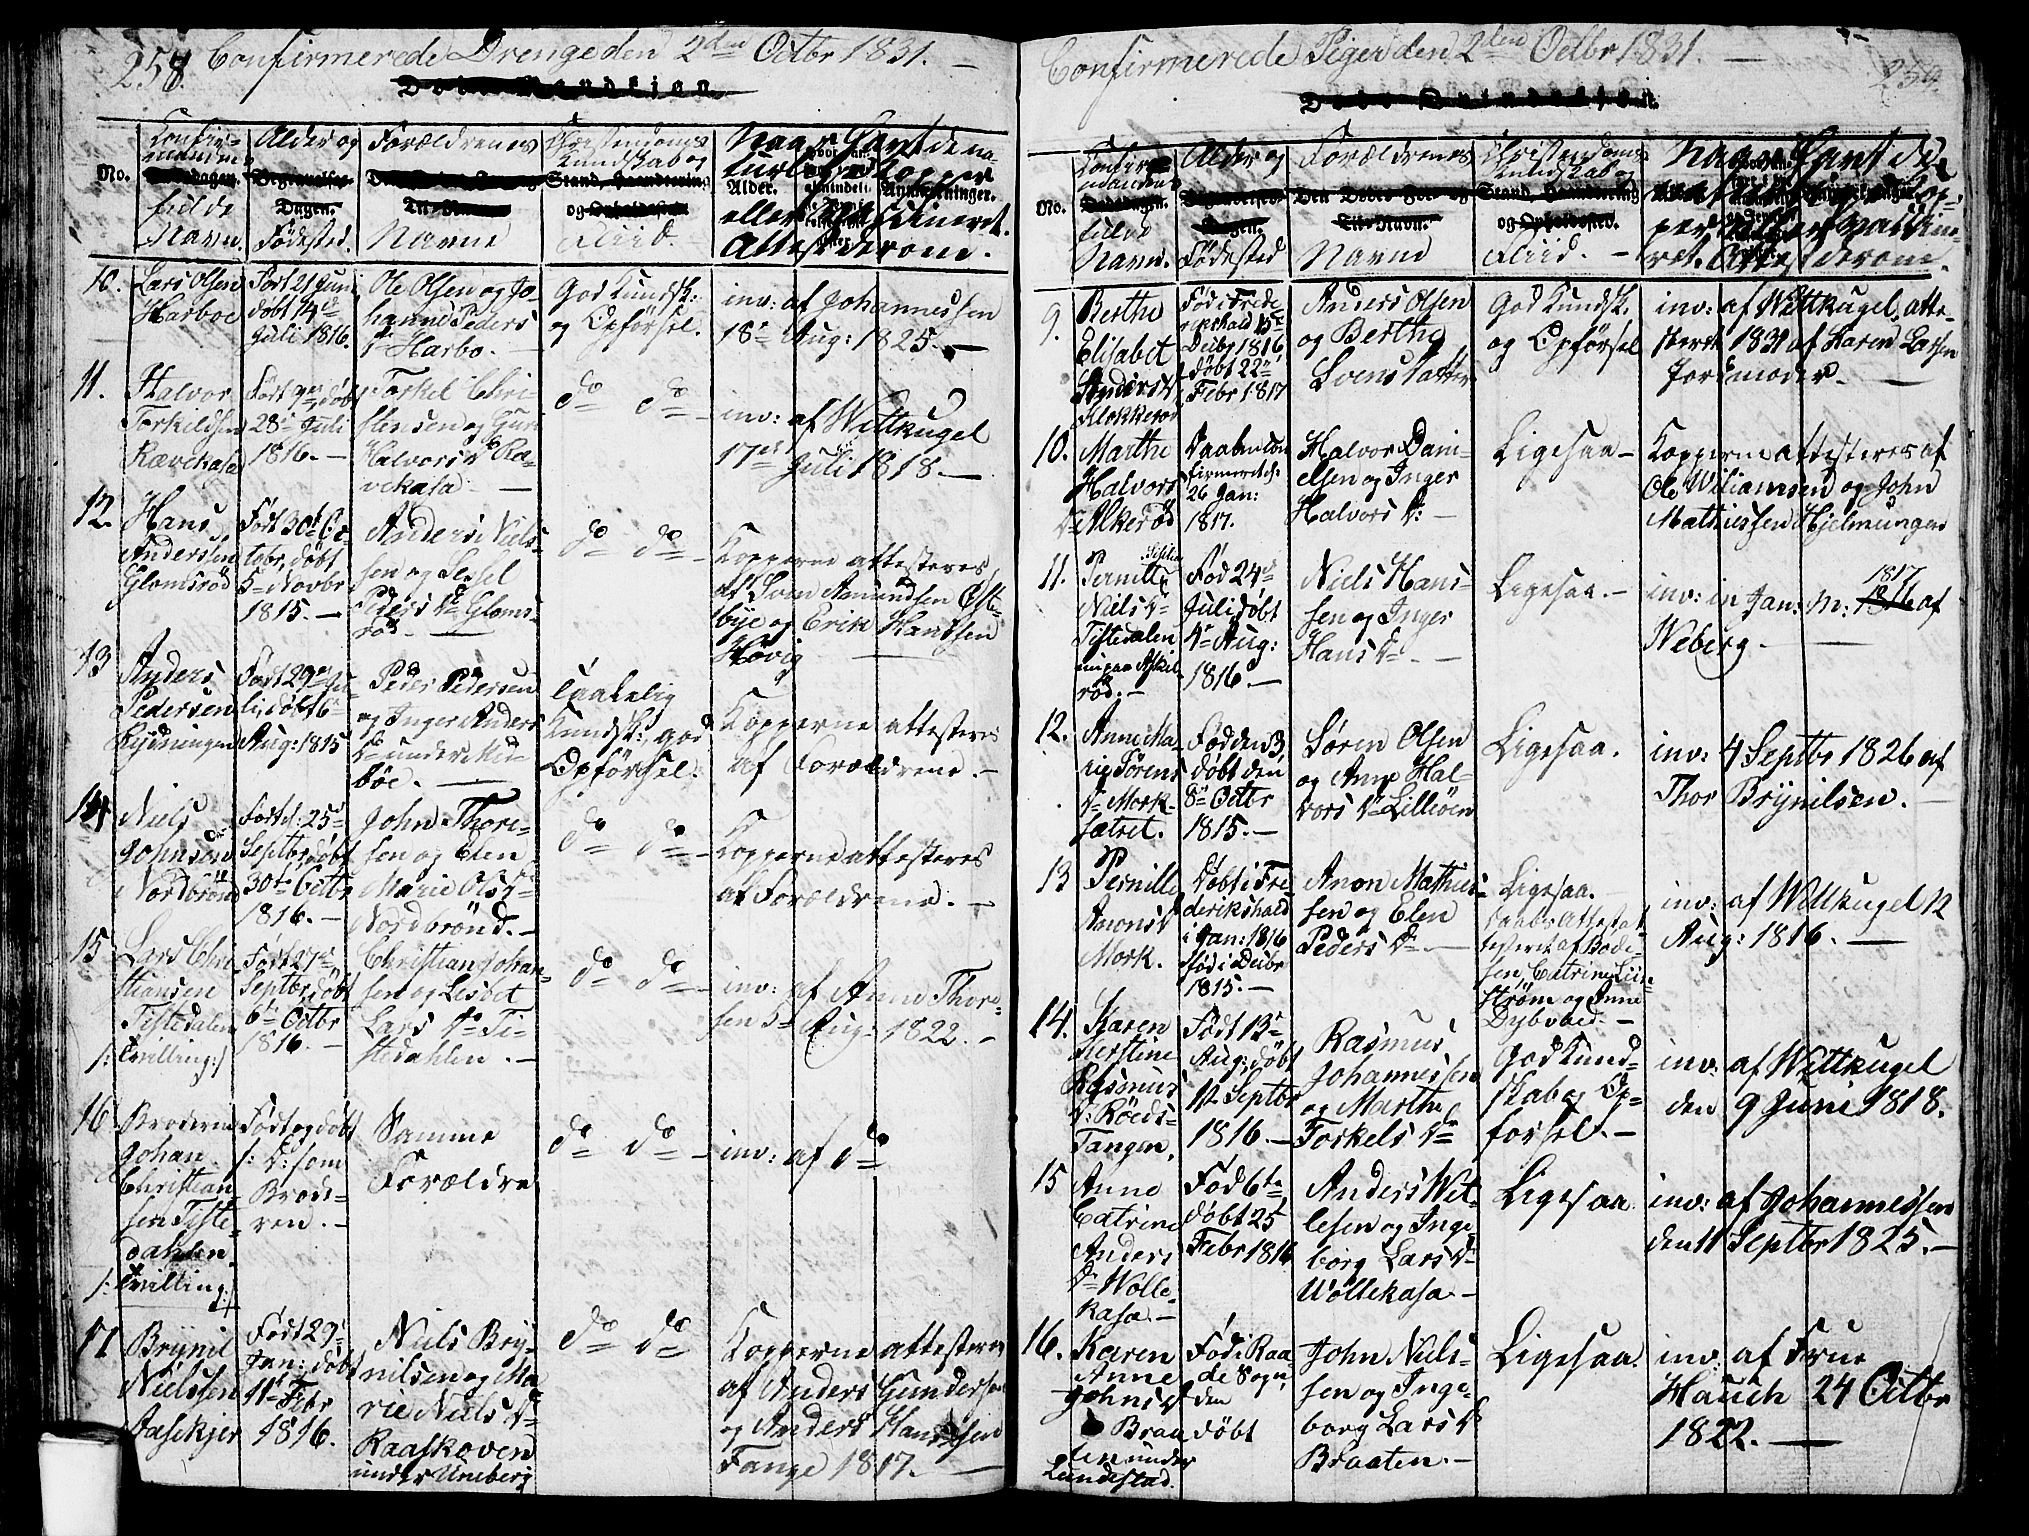 258. Confirmerede Drenge den 2den Octbr 1831. —
Døde Mandkiøn.
No.
Confir-
mandens
fulde
Navn.
Alder og
Dagen.
Fødested.
Forældrenes
Navne
Christendoms
Kundskab og
Fliid.
Naar havt de na-
turlige Kopper
eller Vaccineret.
Attest derom.
10.
Lars Olsen
Harboe
Født 21 Juni
døbt 14de
Juli 1816.
Ole Olsen og Jo-
hanne Peders
Dr Harbo. —
God Kundsk:
og Opførsel.
inv: af Johannessen
18de Aug: 1825. —
11.
Halvor
Torkildsen
Rævekasa
døbt
28de Juli
1816. —
Torkel Chri-
stensen og Guri
Halvors Dr Ræ-
vekasa —
do do
inv: af Wittkugel
17de Juli 1818. —
12.
Hans
Andersen
Glomsrød
Født 30te Oc-
tobr, døbt
5te Novbr
1815. —
Anders Niels-
sen og Lisel
Peders Dr Gloms-
rød. —
do do
Kopperne attesteres
af Sven Amundsen Øst-
bye og Erik Hanssen
Høvig —
13
Anders
Pedersen
Rydningen
Født 29de Ju-
li, døbt 6te
Aug: 1815
Peder Pedersen
og Inger Anders
Dr under
bøe. —
Taalelig
Kundsk:, god
Opførsel:
Kopperne attesteres
af Forældrene. —
14.
Niels
Johnsen
Nordbrønd
Født d: 25de
Septbr, døbt
30te Octbr
1816. —
John Thore-
sen og Elen
Marie Ols Dr
Nordbrønd. —
do do
Kopperne attesteres
af Forældrene. —
15
Lars Chri-
stiansen
Tistedalen
/: Tvilling :/
Født 27de
Septbr, døbt
6te Octbr
1816. —
Christian Johan-
sen og Lisbet
Lars Dr Ti-
stedahlen. —
do do
inv: af Anne Thore-
sen 5te Aug: 1822. —
16
Broderen
Johan
Christian-
sen Tiste-
dahlen
/: Tvilling :/
Født og døbt
/: D: som
Brode-
ren. —
Samme
Forældre
do do
inv: af do
17
Brynil
Nielssen
Aasekjer
Født 29de
Jan: døbt
11te Febr
1816.
Niels Bry-
nilsen og Ma-
rie Niels Dr
Raaskoven
under Uneberg
do do
Kopperne attesteres
af Anders Gundersen
og Anders Hanssen
Fange 1817. —
Confirmerede Piger den 2den Octbr 1831. —
259.
Døde Qvindekiøn.
No.
Confir-
mandens
fulde
Navn.
Alder og
Fødested
Forældrenes
Navne
Christendoms
Kundskab og
Fliid. —
Naar havt de
naturlige Kop-
per eller Vaccine-
ret. Attest derom.
9.
Berthe
Elisabet
Anders Dr
Klokkerød
Fød i Frede
rikshald 15de
Decbr 1816
døbt 22de
Febr 1817
Anders Olsen
og Berthe
Svens Datter
God Kundsk.
og Opførsel
inv: af Wittkugel, atte-
steret 1831 af Karen Larsen
Jordmoder. —
10.
Marthe
Halvors
Dr Alkerød
Daaben con
firmeret d:
26 Jan:
1817.
Halvor Dani-
elsen og Inger
Halvors D: —
Ligesaa —
Kopperne attesteres af
Ole Wiliamsen og John
Mathiessen Hjelmungen
11.
Pernille
Niels Dr
Tistedalen
nu paa Askil-
rød. —
Fød 24de
Juli døbt
4de Aug:
1816. —
Niels Hans-
sen og Inger
Hans Dr —
Ligesaa. —
inv: in Jan: M: 1816 1817 af
Weberg. —
12.
Anne Ma-
rie Sørens
Dr Mork-
sætret.
Fød den 3
døbt den
8de Octbr
1815. —
Søren Olsen
og Anne Hal-
vors Dr Lilleøen
Ligesaa.
inv: 4 Septbr 1826 af
Thor Brynilsen. —
13
Pernille
Amons D
Mork.
Døbt i Fre-
derikshald
i Jan: 1816
fød i Decbr
1815. —
Amon Mathies-
sen og Elen
Peders Dr —
Ligesaa. —
Daabs Attestat
af Bodi-
sen, Catrine Lin-
strøm og Anne
Dybvad. —
inv: af Wittkugel 12
Aug: 1816. —
14.
Karen
Kerstine
Rasmus
D: Røeds-
Tangen.
Født 13de
Aug:, døbt
12 Septbr
1816. —
Rasmus
Johannessen
og Marthe
Torkels Dr
God Kund-
skab og Op-
førsel. —
inv: af Wittkugel
den 9 Juni 1818.
15
Anne
Catrine
Anders
Dr Wolle-
kasa. —
Fød 6te
døbt 25
Febr 1816
Anders Wet-
lesen og Inge
borg Lars Dr
Wollekasa. —
Ligesaa.
inv: af Johannessen
den 11 Septbr 1825. —
16.
Karen
Anne
Johns D
Braa
ten under
Lundestad.
Fød i Raa-
de Sogn,
den
døbt
John Niels-
sen og Inge-
borg Lars Dr
Braaten. —
Ligesaa.
inv: af Frue
Hauch 24 Octbr
1822. —